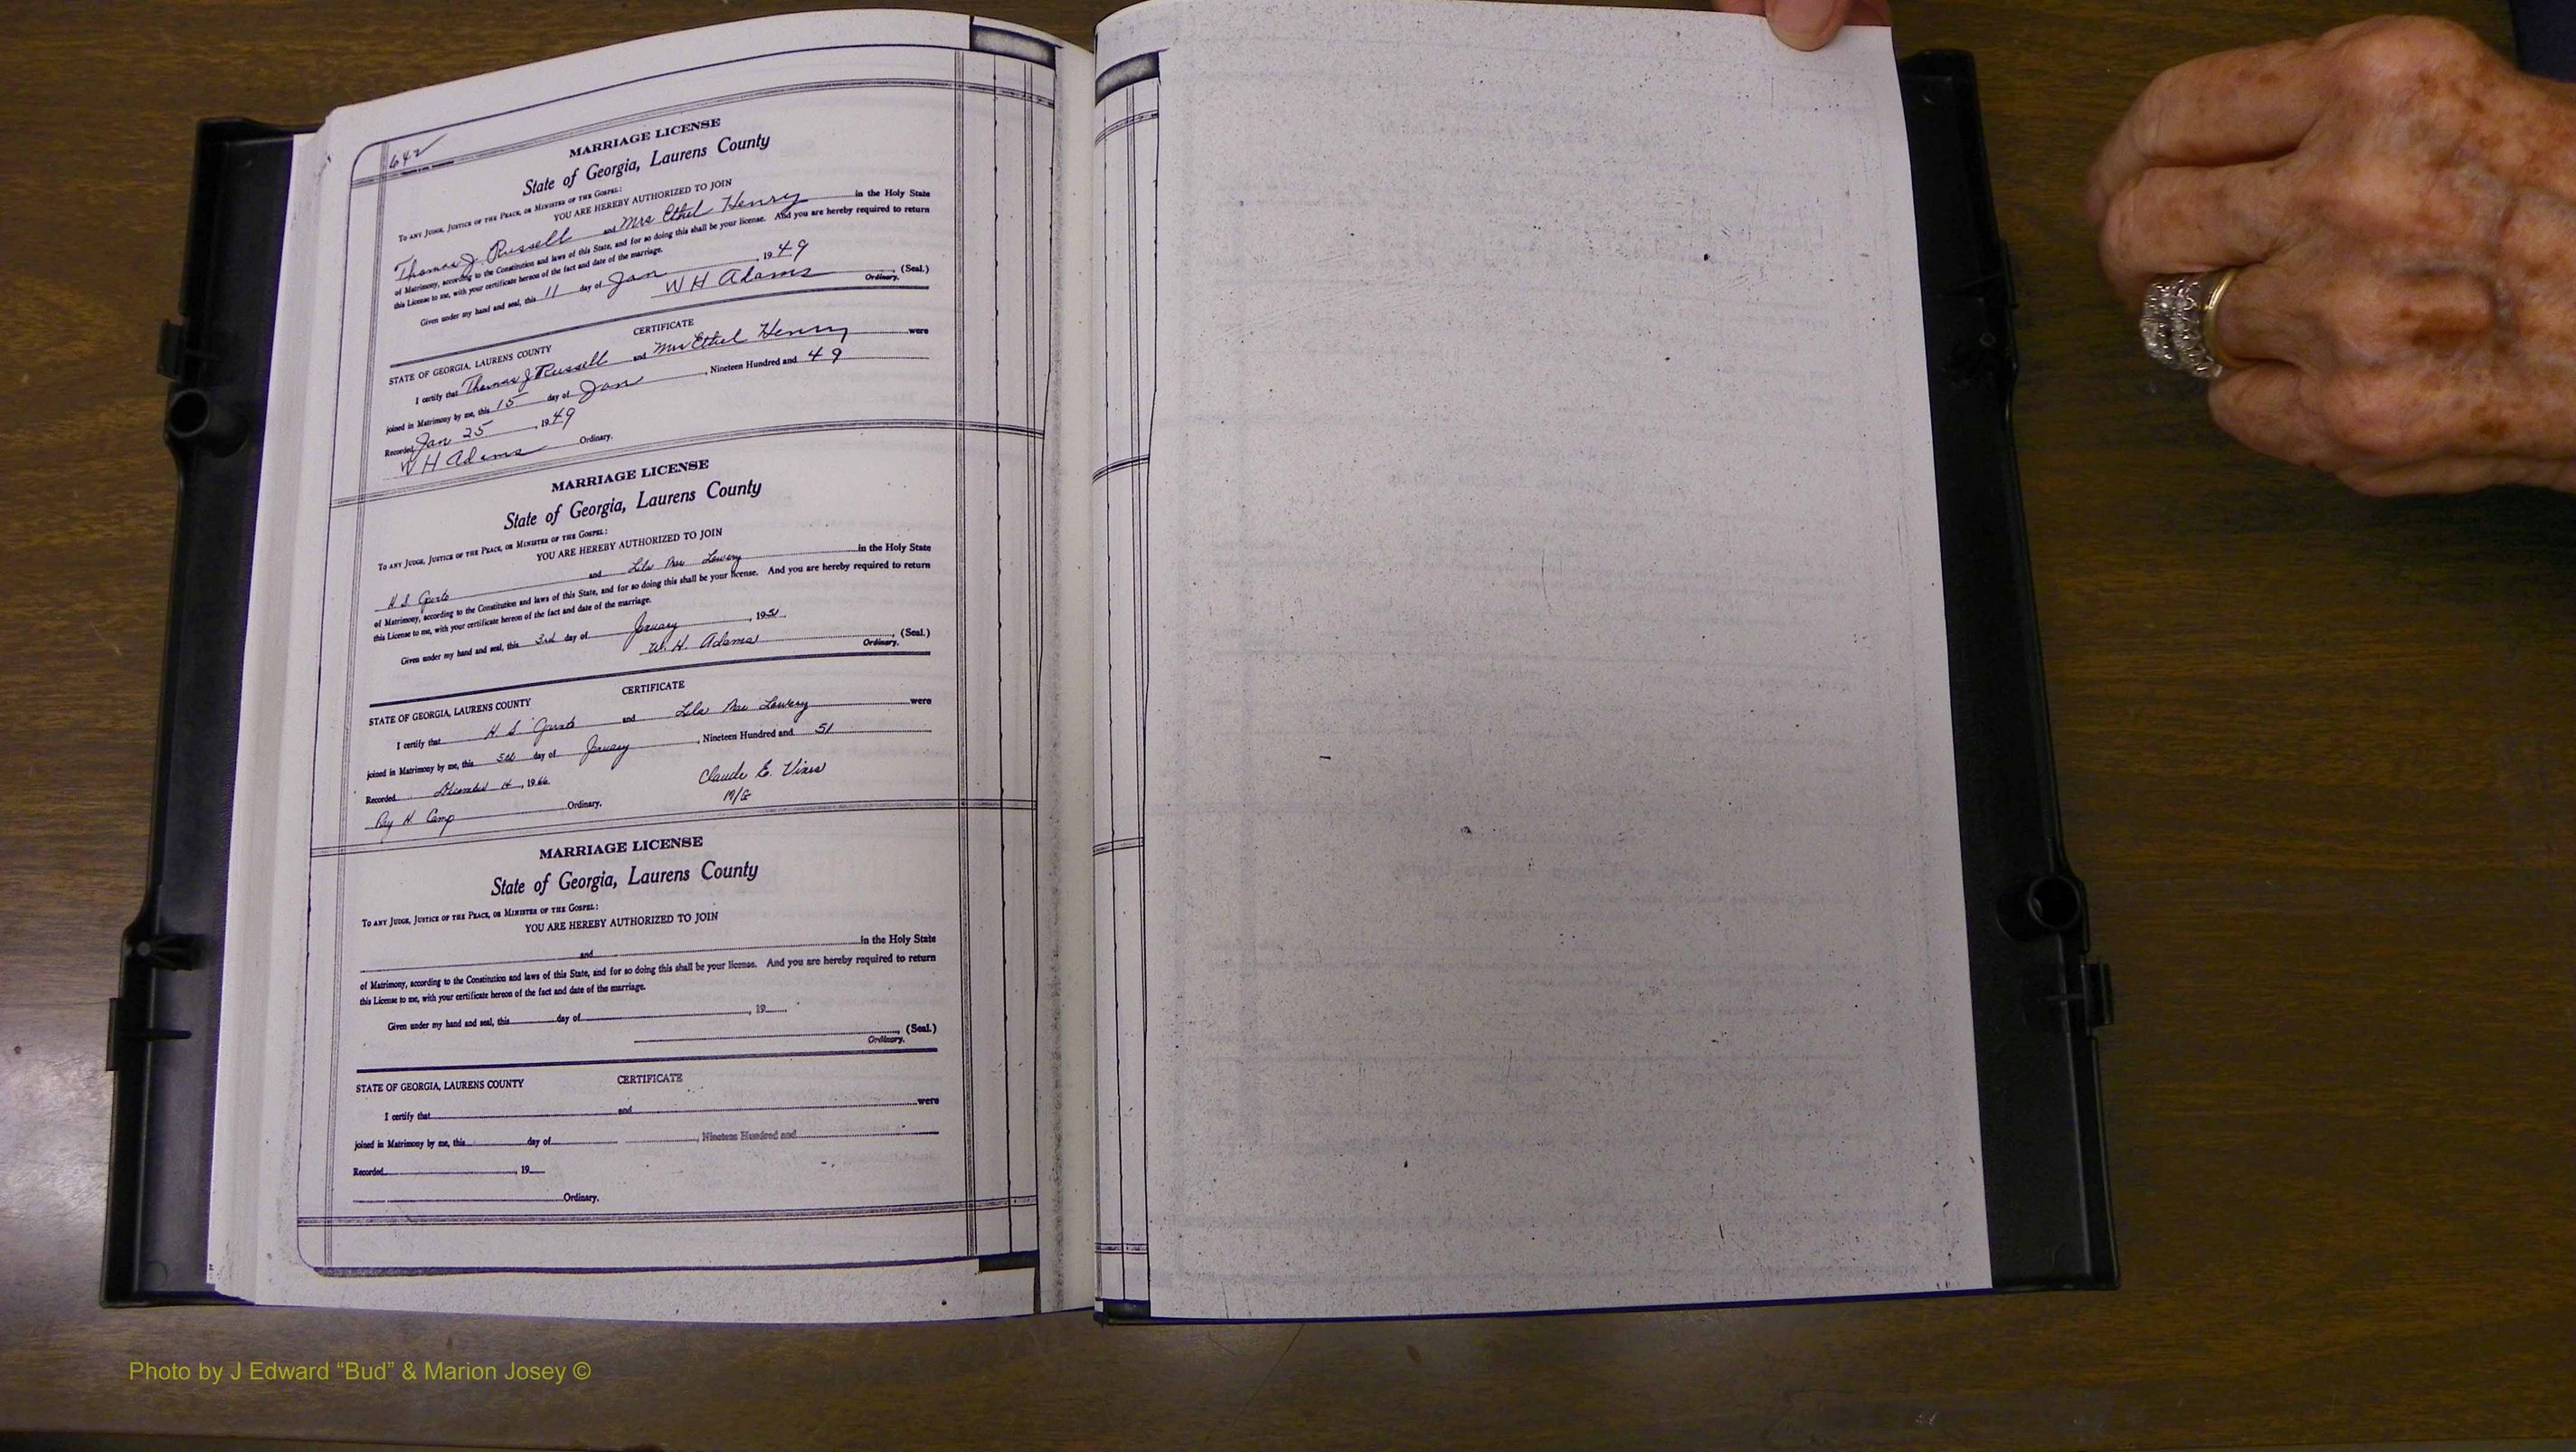 642
MARRIAGE LICENSE
State of Georgia, Laurens County
TO ANY JUDGE, JUSTICE OF THE PEACE, OR MINISTER OF THE GOSPEL:
YOU ARE HEREBY AUTHORIZED TO JOIN
Thomas J. Russell and Mrs Ethel Henry in the Holy State
of Matrimony, according to the Constitution and laws of this State, and for so doing this shall be your license. And you are hereby required to return
this License to me, with your certificate hereon of the fact and date of the marriage.
Given under my hand and seal, this 11 day of Jan, 1949
W H Adams (Seal.)
Ordinary.
CERTIFICATE
STATE OF GEORGIA, LAURENS COUNTY
I certify that Thomas J Russell and Mrs Ethel Henry were
joined in Matrimony by me, this 15 day of Jan, Nineteen Hundred and 49
Recorded Jan 25, 1949
W H Adams Ordinary.
MARRIAGE LICENSE
State of Georgia, Laurens County
TO ANY JUDGE, JUSTICE OF THE PEACE, OR MINISTER OF THE GOSPEL:
YOU ARE HEREBY AUTHORIZED TO JOIN
H. S. and Lila Mae Lowery in the Holy State
of Matrimony, according to the Constitution and laws of this State, and for so doing this shall be your license. And you are hereby required to return
this License to me, with your certificate hereon of the fact and date of the marriage.
Given under my hand and seal, this 3rd day of January, 1951.
W. H. Adams (Seal.)
Ordinary.
CERTIFICATE
STATE OF GEORGIA, LAURENS COUNTY
I certify that H. S. and Lila Mae Lowery were
joined in Matrimony by me, this 5th day of January, Nineteen Hundred and 51
Recorded December 14, 1966
Claude E. Vines
M/G
Ray H. Camp Ordinary.
MARRIAGE LICENSE
State of Georgia, Laurens County
TO ANY JUDGE, JUSTICE OF THE PEACE, OR MINISTER OF THE GOSPEL:
YOU ARE HEREBY AUTHORIZED TO JOIN
and in the Holy State
of Matrimony, according to the Constitution and laws of this State, and for so doing this shall be your license. And you are hereby required to return
this License to me, with your certificate hereon of the fact and date of the marriage.
Given under my hand and seal, this day of, 19
(Seal.)
Ordinary.
CERTIFICATE
STATE OF GEORGIA, LAURENS COUNTY
I certify that and were
joined in Matrimony by me, this day of, Nineteen Hundred and
Recorded, 19
Ordinary.
Photo by J Edward “Bud” & Marion Josey ©